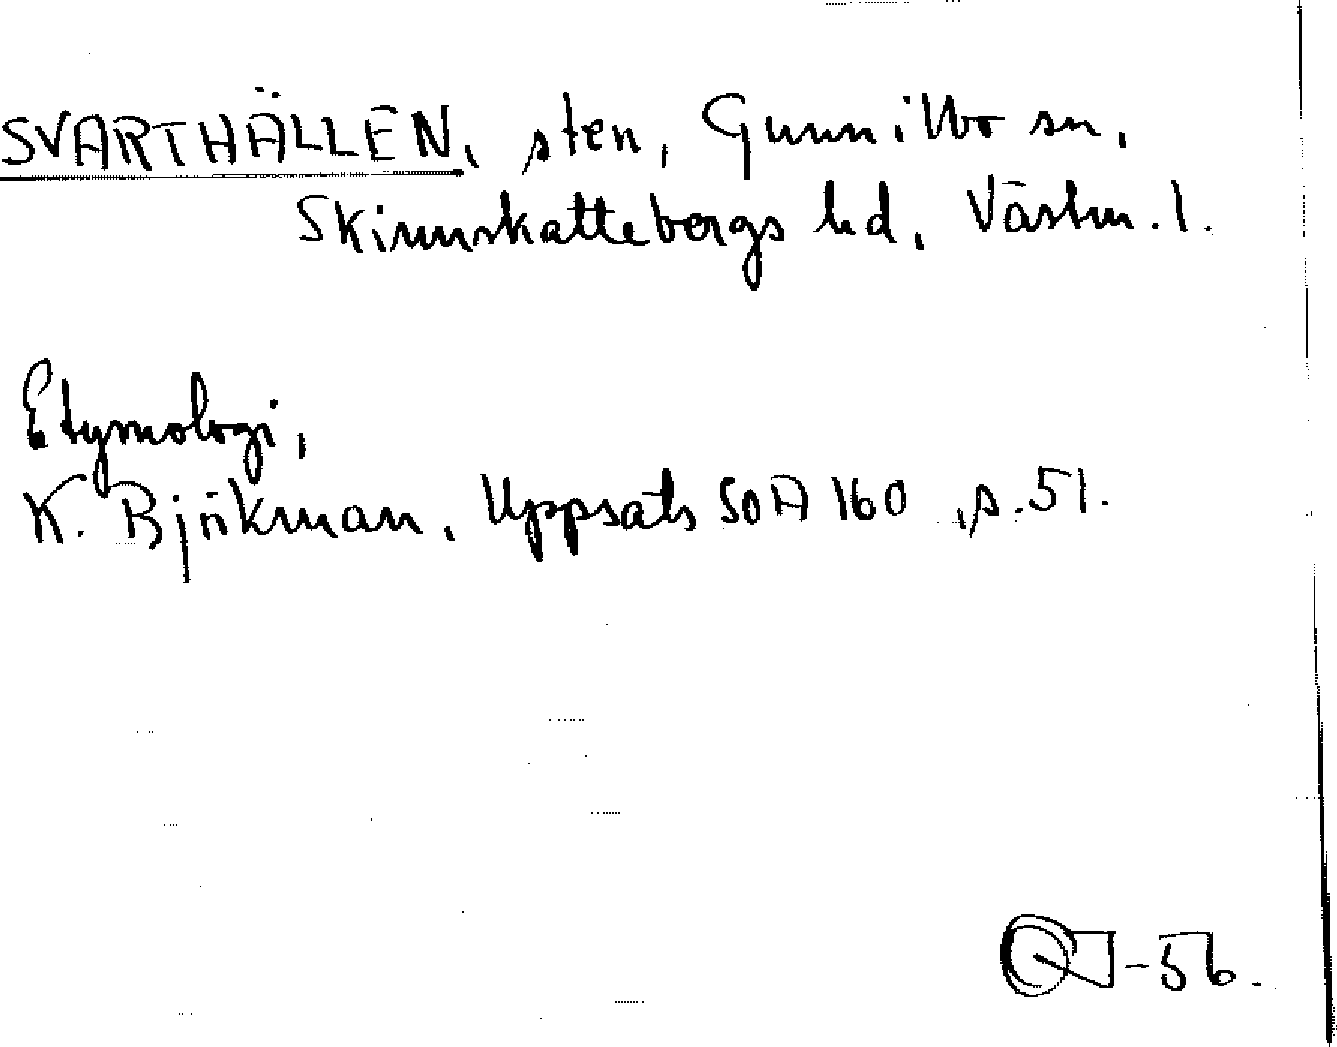 SVARTHÄLLEN, sten, Gunnilbo sn,
Skinnskattebergs hd, Västm. l.
Etymologi,
K. Björkman, Uppsats SOA 160, s. 51.
-56.